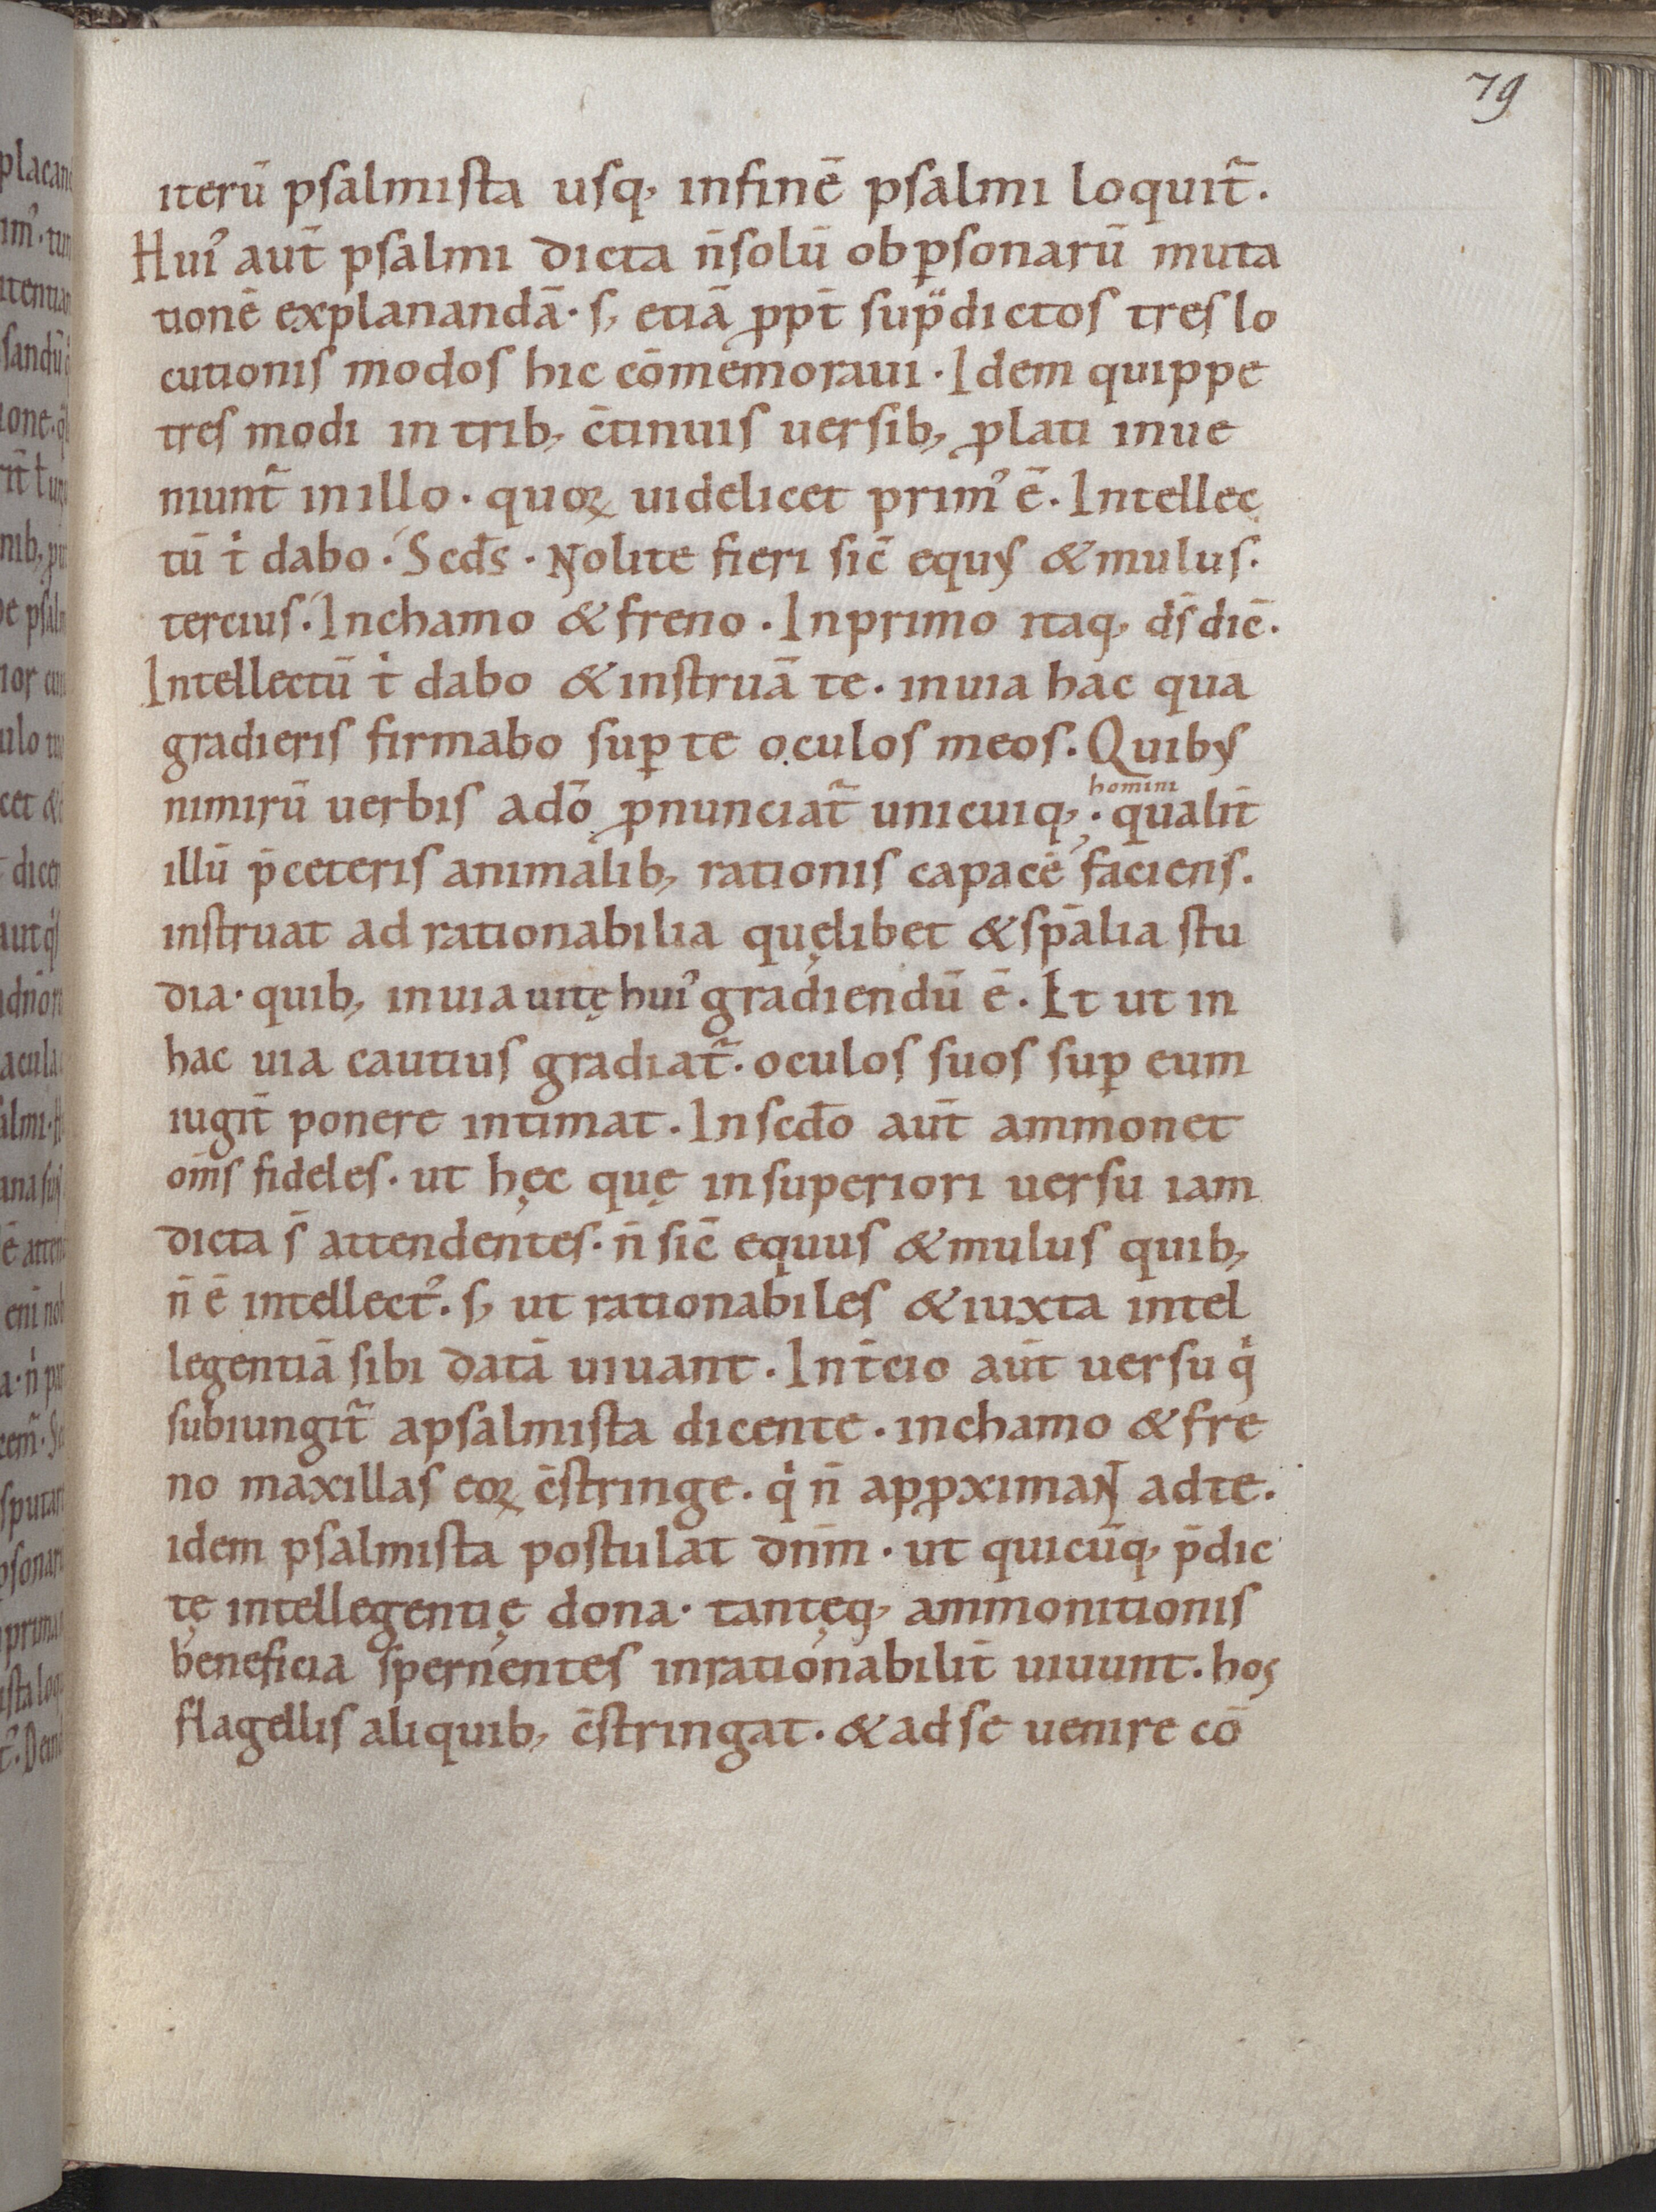 79
iterū psalmista usq; infinē psalmi loquit̃.
Hui᾽ aut̄ psalmi dicta n̄solū obp̱sonarū muta
tionē explanandā· s; etiā ꝓpt̄ sup̱dictos tres lo
cutionis modos hic cōmemoraui · Idem quippe
tres modi in trib; c̄tinuis uersib; ꝓlati inue
niunt̃ inillo · quoꝝ uidelicet prim᾽ ē. Intellec
tū t̍ dabo · Scd̄s · Nolite fieri sic̄ equus & mulus.
tercius. Inchamo & freno · Inprimo itaq; d̄s dic̄.
Intellectū t̍ dabo & instruā te · inuia hac qua
gradieris firmabo suꝑ te oculos meos. Quibus
homini
nimirū uerbis adō ꝓnunciat̃ unicuiq; · qualit̄
illū p̄ceteris animalib; rationis capacē faciens.
instruat ad rationabilia quęlibet & sp̄alia stu
dia · quib; inuia uitę hui᾽ gradiendū ē · Et ut in
hac uia cautius gradiat̃ · oculos suos suꝑ eum
iugit̄ ponere intimat · Inscd̄o aut̄ ammonet
om̄s fideles · ut hęc quę insuperiori uersu iam
dicta s̄ attendentes · n̄ sic̄ equus & mulus quib;
n̄ ē intellect᾽. s; ut rationabiles & iuxta intel
legentiā sibi datā uiuant · Int̄cio aut̄ uersu q̍
subiungit̃ apsalmista dicente · inchamo & fre
no maxillas eoꝝ c̄stringe · q̍ n̄ apꝓximant adte.
idem psalmista postulat dn̄m · ut quicūq; p̄dic
tę intellegentię dona · tantęq; ammonitionis
beneficia spernentes inrationabilit̄ uiuunt · hos
flagellis aliquib; c̄stringat · & adse uenire cō